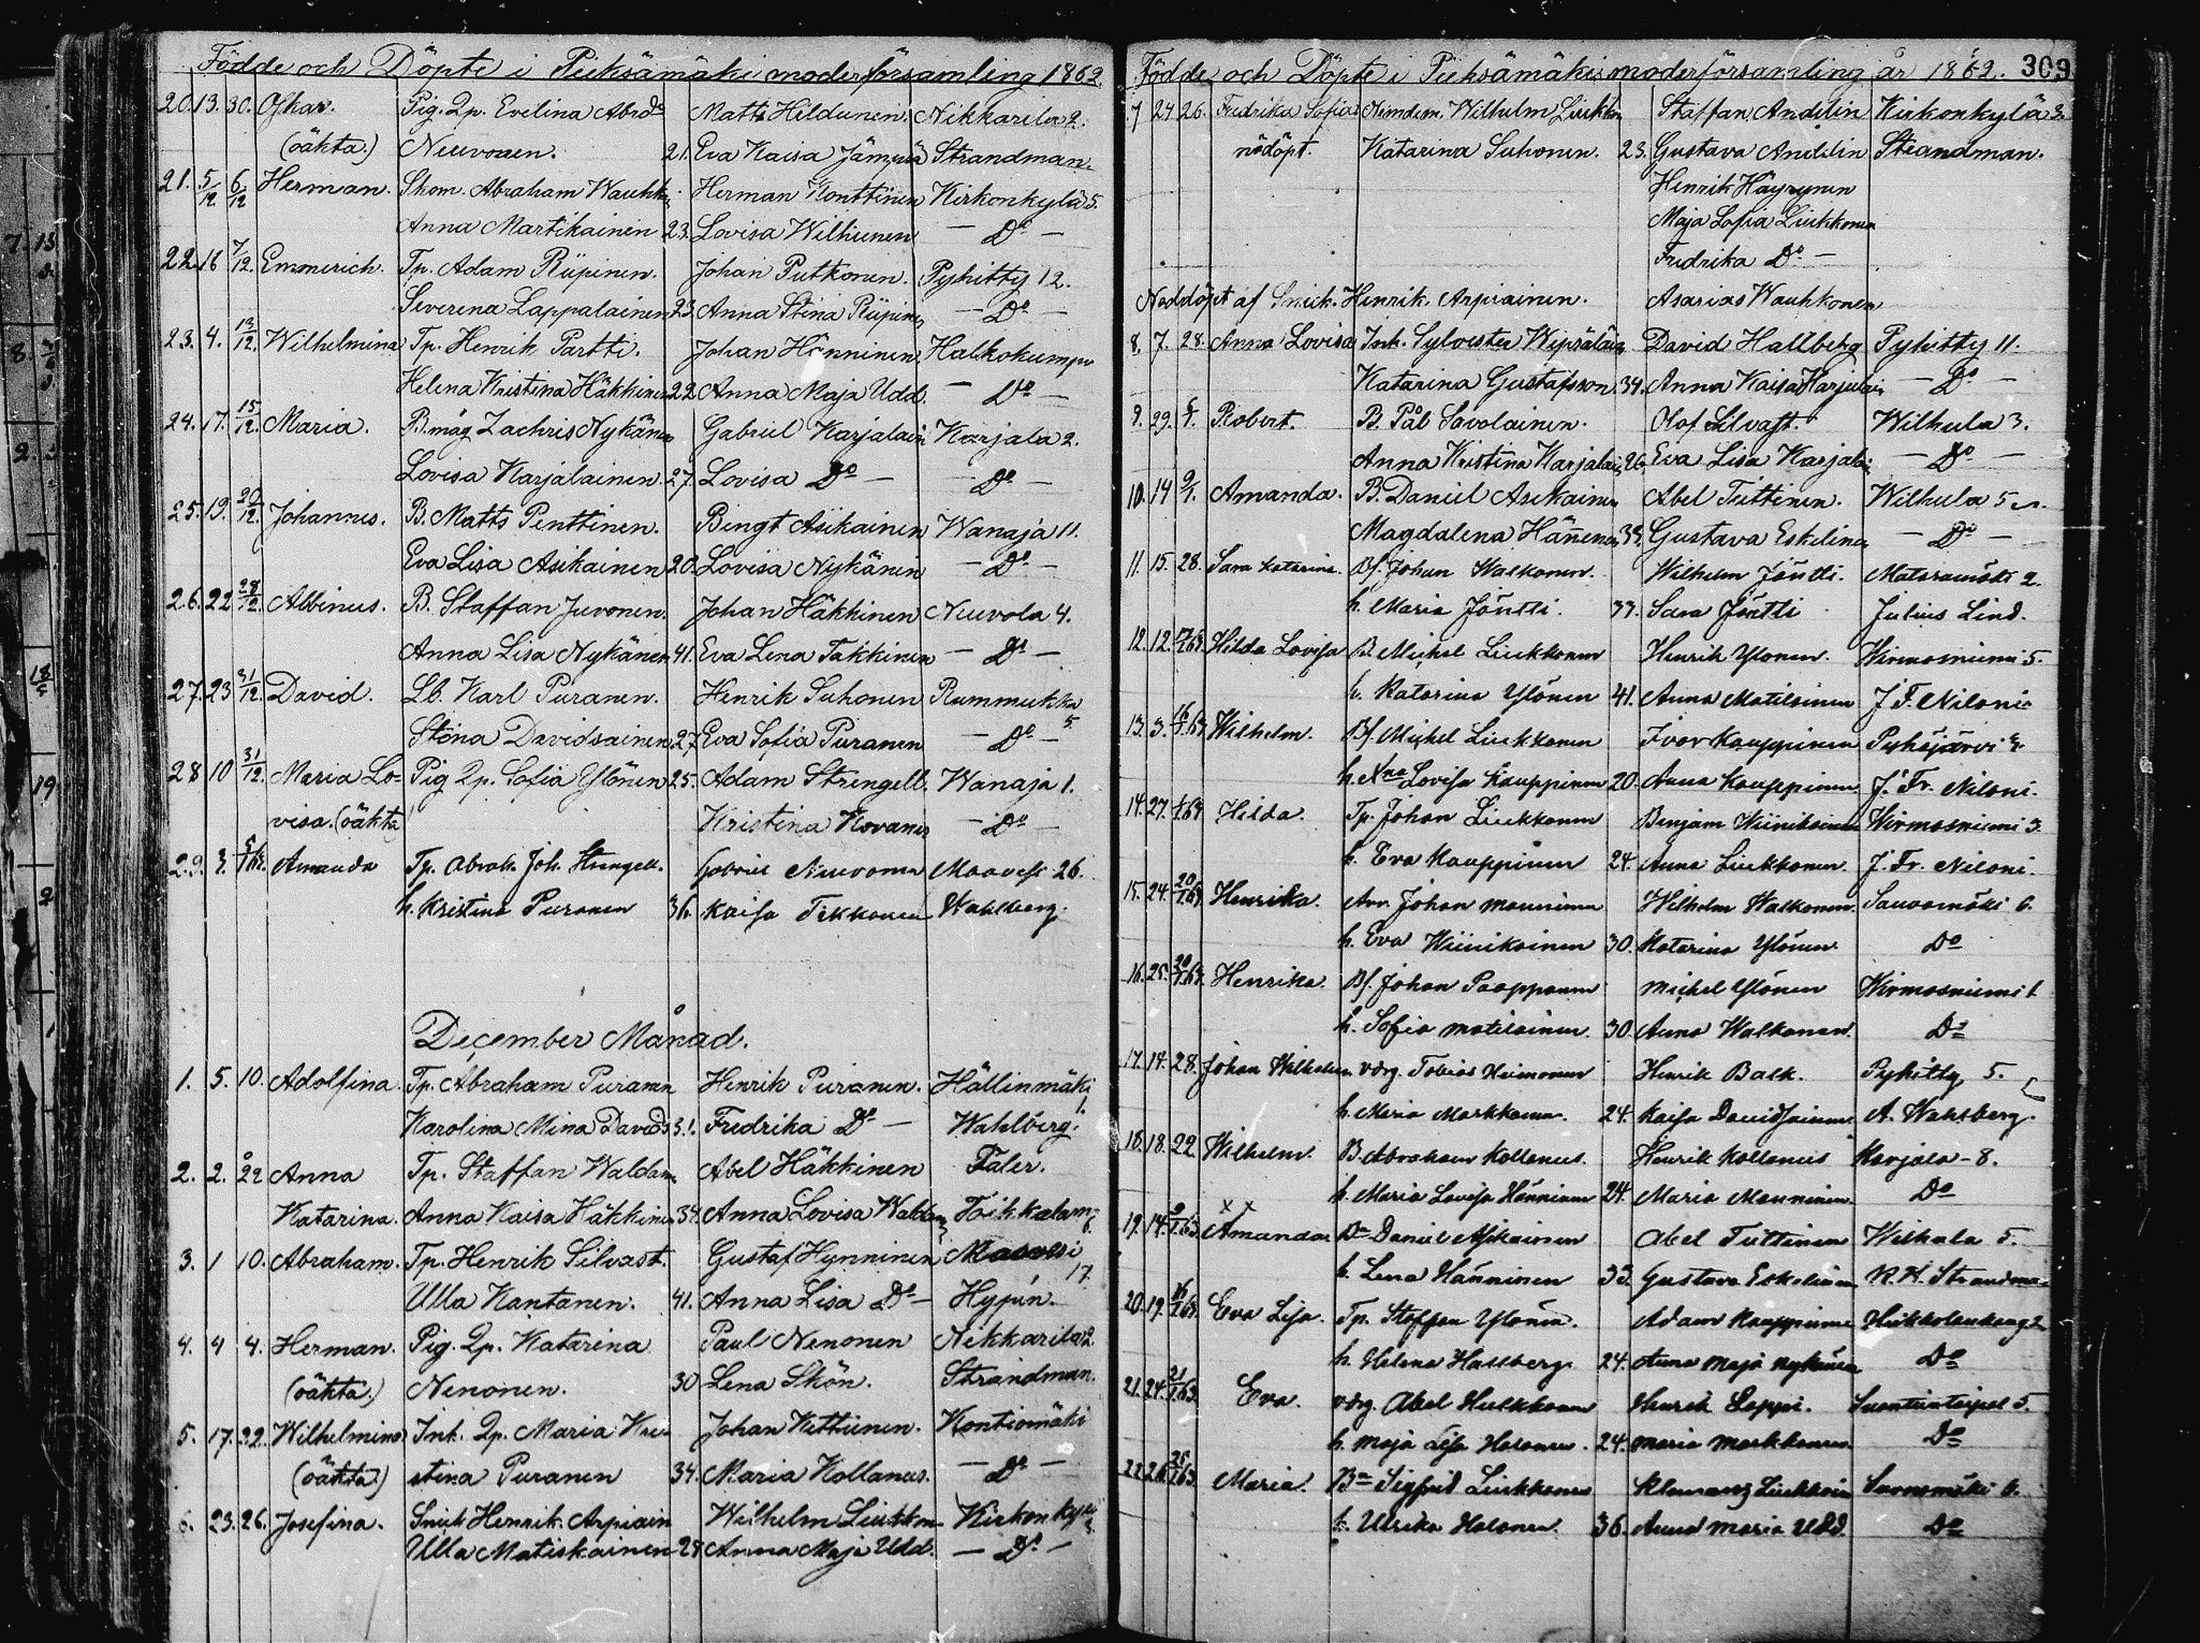 Födde och Döpte i Pieksämäki moderförsamling 1862.
20. 13. 30. Oskar. Pig. Qp. Evelina Abrdr Matts Hildunen. Nikkarila 2.
(oäkta) Neuvonen. 21. Eva Kaisa Jämpsä Strandman.
21. 5/12 6/12 Herman. Skom. Abraham Wauhk. Herman Konttinen Kirkonkylä 5.
Anna Martikainen 23. Lovisa Wilhunen — Do —
22. 16 7/12. Emmerich. Tp. Adam Riipinen. Johan Putkonen. Pyhitty 12.
Severena Lappalainen 23. Anna Stina Riipinen — Do —
23. 4. 13/12. Wilhelmina Tp. Henrik Partti. Johan Hänninen Halkokumpu
Helena Kristina Häkkinen 22. Anna Maja Udd. — Do —
24. 17. 15/12. Maria. B.måg Zachris Nykänen Gabriel Karjalain Karjala 2.
Lovisa Karjalainen. 27. Lovisa Do — Do —
25. 19. 20/12. Johannes. B. Matts Penttinen. Bengt Asikainen Wanaja 11.
Eva Lisa Asikainen 20. Lovisa Nykänen — Do —
26. 22 28/12. Albinus. B. Staffan Juvonen. Johan Häkkinen Neuvola 4.
Anna Lisa Nykänen 41. Eva Lena Takkinen — Do —
27. 23 31/12. David. Lb. Karl Puranen. Henrik Suhonen Rummukka 5.
Stina Davidsainen 27. Eva Sofia Puranen — Do —
28 10 31/12. Maria Lo= Pig Qp. Sofia Ylönen 25. Adam Strengell. Wanaja 1.
visa. (oäkta) Kristina Kovanen — Do —
29. 3. Amanda Tp. Abrah. Joh. Strengell. Gabriel Neuvonen Maavesi 26.
h. Kristina Puranen 36. Kaisa Tikkanen Wahlberg.
December Månad.
1. 5. 10. Adolfina. Tp. Abraham Puranen Henrik Puranen. Hällinmäki 1.
Karolina Mina Davids 31. Fredrika Do — Wahlberg.
2. 2. 22 Anna Tp. Staffan Waldan Abel Häkkinen Taler.
Katarina. Anna Kaisa Häkkinen 34. Anna Lovisa Waldan Toikkalam 6.
3. 1 10. Abraham. Tp. Henrik Silvast. Gustaf Hynninen Maavesi 17.
Ulla Kantanen. 41. Anna Lisa Do — Hypén.
4. 4 4. Herman. Pig. Qp. Katarina Paul Nenonen Nikkarila 2.
(oäkta.) Nenonen. 30 Lena Skön. Strandman.
5. 17. 22. Wilhelmina Inh. Qp. Maria Kri= Johan Kettunen. Kontiomäki
(oäkta) stina Puranen 34. Maria Kollanus. — Do —
6. 23. 26. Josefina. Snick Henrik Arpiain Wilhelm Liukkon Kirkonkylä 3.
Ulla Matiskainen 28 Anna Maja Udd. — Do —
Födde och Döpte i Pieksämäki moderförsamling år 1862. 309
7 24 26. Fredrika Sofia Nimdem. Wilhelm Liukkon Staffan Andelin Kirkonkylä 3.
nödöpt. Katarina Suhonen. 23. Gustava Andelin Strandman.
Henrik Häyrynen
Maja Sofia Liukkonen
Fredrika Do —
Nöddöpt af Snick. Henrik Arpiainen. Asarias Wauhkonen
8. 7. 28. Anna Lovisa Inh. Sylvester Wepsäläin David Hallberg Pyhitty 11.
Katarina Gustafsson. 34. Anna Kaisa Karjalain — Do —
9. 29. 6/1. Robert. B. Pål Savolainen. Olof Silvast. Wilhula 3.
Anna Kristina Karjalai 26. Eva Lisa Karjalai — Do —
10. 14 9/1. Amanda. B. Daniel Asikainen Abel Tiittinen. Wilhula 5
Magdalena Hännenen 33. Gustava Eskelinen — Do —
11. 15. 28. Sara Katarina. Bf. Johan Walkonen. Wilhelm Jöntti. Mataramäki 2.
h. Maria Jöntti. 33. Sara Jöntti Julius Lind.
12. 12. Hilda Lovisa B. Michel Liukkonen Henrik Ylönen. Wirmasniemi 5.
h. Katarina Ylönen 41. Anna Matilainen J. F. Niloni
13. 3. Wilhelm. Bf. Michel Liukkonen Ivar Kauppinen Pyhäjärvi
h. Xna Lovisa Kauppinen 20. Anna Kauppinen J. Fr. Niloni.
14. 27. Hilda. Tp. Johan Liukkonen Benjam Wiinikainen Wirmasniemi 3.
h. Eva Kauppinen 24. Anna Liukkonen. J. Fr. Niloni.
15. 24. Henrika. Arr. Johan Manninen Wilhelm Walkonen. Sauvomäki 6.
h. Eva Wiinikainen 30. Katarina Ylönen Do
16. 25. Henrika. Bf. Johan Paappanen Michel Ylönen Wirmasniemi 1.
h. Sofia Matilainen. 30. Anna Walkonen. Do
17. 14. 28. Johan Wilhelm. Vdrg. Tobias Heimonen Henrik Back. Pyhitty 5.
h. Maria Markkanen. 24. Kaisa Davidsainen A. Wahlberg.
18. 18. 22. Wilhelm. B. Abraham Kollanus. Henrik Kollanus Karjala - 8.
h. Maria Lovisa Hänninen 24. Maria Manninen. Do
x x
19. 14. 9/1 63. Amanda Dn Daniel Asikainen Abel Tiittinen Wilhula 5.
h. Lena Hänninen 33. Gustava Eskelinen K. H. Strandman
20. 19. Eva Lisa. Tp. Staffan Ylönen. Adam Kauppinen
h. Helena Hallberg. 24. Anna Maja Nykänen Do
21. 24. 21/1 63. Eva. Vdrg. Abel Hulkkonen Henrik Lappi. Suontientaipal 5.
h. Maja Lisa Halonen. 24. Maria Markkanen Do
22. 26. 25/1 63. Maria. Bn Sigfrid Liukkonen Klemens Liukkoin Savomäki 6.
h. Ulrika Halonen. 36. Anna Maria Udd. Do